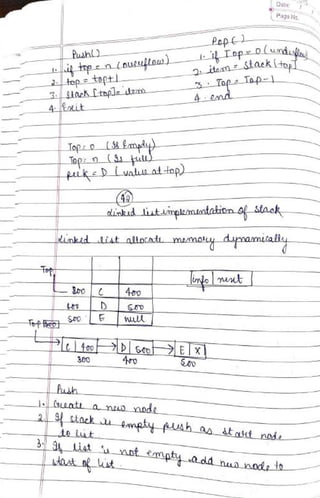 Date
Page No.
Push()
1. if top = n (overflow)
2. top = top+1
3. Stack [top] = item
4. Exit
Pop ()
1. if Top = 0 (underflow)
2. item = Stack [top]
3. Top = Top-1
4. end
Top = 0 (Is Empty)
Top = n (Is full)
peek = D (value at top)
Linked list implementation of Stack
Linked list allocate memory dynamically
Top
info next
300 C 400
400 D 500
500 E null
Top 300
C 400 D 500 E X
300 400 500
Push
1. Create a new node
2. If Stack is empty push as start node
to list
3. If list is not empty add new node to
start of list